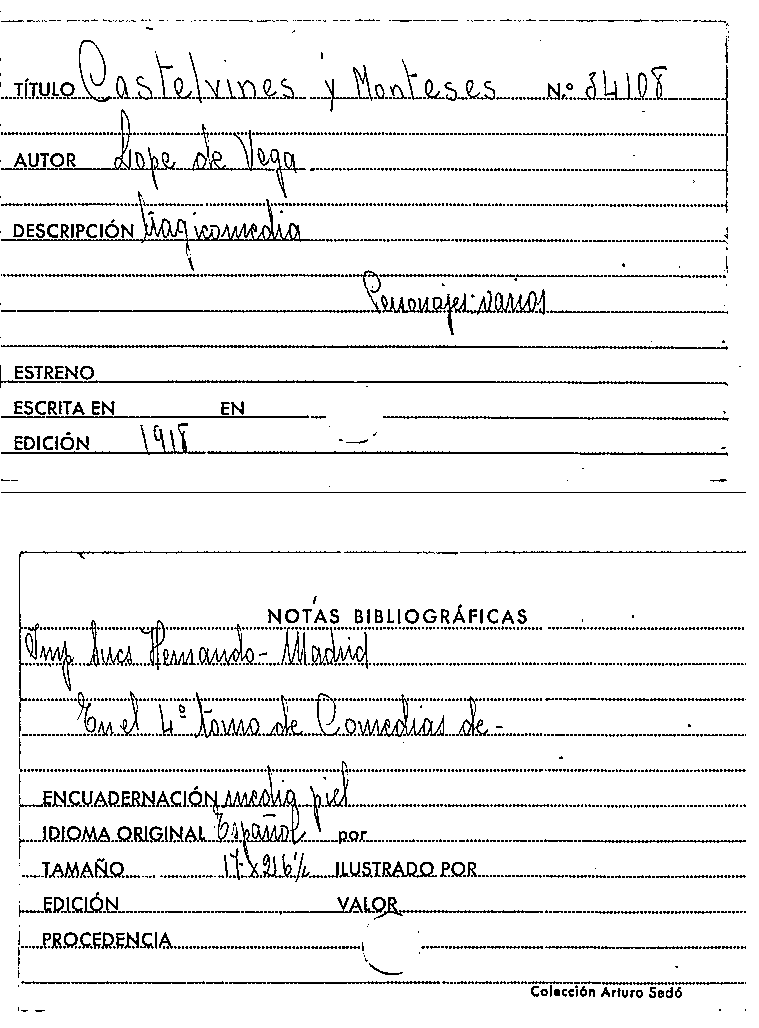 TÍTULO Castelvines y Monteses N.º 34108
AUTOR Lope de Vega
DESCRIPCIÓN tragicomedia
Personajes: varios
ESTRENO
ESCRITA EN EN
EDICIÓN 1918
NOTAS BIBLIOGRÁFICAS
Imp Sucs Hernando - Madrid
En el 4º tomo de Comedias de -
ENCUADERNACIÓN media piel
IDIOMA ORIGINAL Español por
TAMAÑO ILUSTRADO POR
EDICIÓN VALOR
PROCEDENCIA
Colección Arturo Sedó